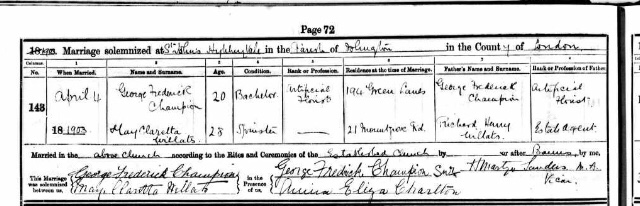 Page 72
1903. Marriage solemnized at St John's Highbury Vale in the Parish of Islington in the County of London
Columns. 1 2 3 4 5 6 7 8
No. When Married. Name and Surname. Age. Condition. Rank or Profession. Residence at the time of Marriage. Father's Name and Surname. Rank or Profession of Father
143 April 4 George Frederick Champion 20 Bachelor Artificial Florist 194 Green Lanes George Frederick Champion Artificial Florist
18 1903 May Claretta Willats 23 Spinster — 21 Mountgrove Rd. Richard Harry Willats Estate Agent
Married in the above Church according to the Rites and Ceremonies of the Established Church by or after Banns, by me,
This Marriage was solemnized between us, George Frederick Champion May Claretta Willats In the Presence of us, George Fredrick Champion Senr Annina Eliza Charlton H Martyn Sanders M.A. Vicar